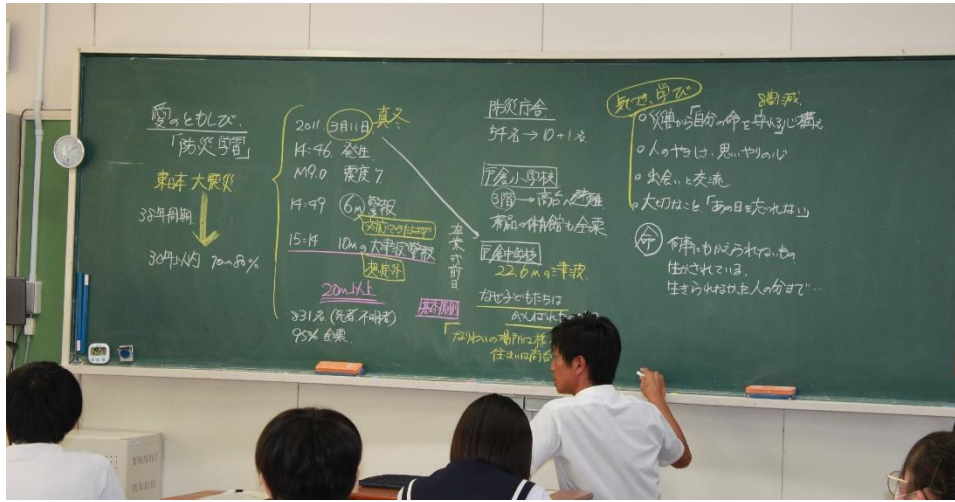 愛のともしび
「防災学習」
東日本大震災
38年周期
30年以内 70〜80%
2011 3月11日 真冬
14:46. 発生
M9.0 震度7.
14:49 6m 警報
対応できたはず
15:14 10mの大津波警報
想定外
20m以上
831名 (死者 不明者)
95% 全壊
卒業式前日
防災庁舎
54名→10+1名
戸倉小学校
3階→高台へ避難
の体育館も全棄
戸倉中学校
22.6mの津波
なぜ子どもたちは
がんばれた
基本原則
「なりわいの場所は様
住まいは高台
気づき、学び
8割減
○災害から「自分の命を守る」心構え
○人のやさしさ、思いやりの心
○出会いと交流
○大切なこと「あの日を忘れない」
命
何事にもかえられないもの
生かされている
生きられなかった人の分まで…